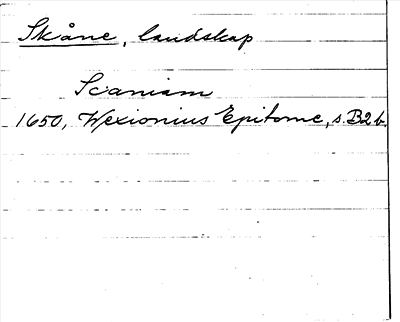 Skåne, landskap
Scaniam
1650, Wexionius Epitome, s. B2 b.